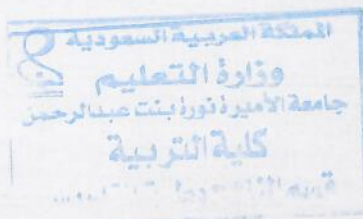 المملكة العربية السعودية
وزارة التعليم
جامعة الأميرة نورة بنت عبدالرحمن
كلية التربية
قسم